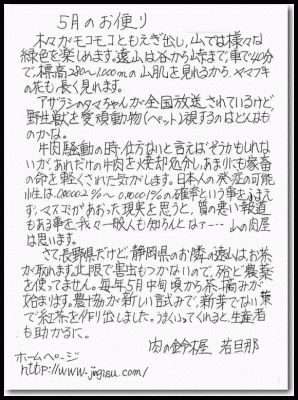 5月のお便り
木々がモコモコともえぎ出し、山では様々な
緑色を楽しめます。遠山は谷から峠まで、車で40分
で、標高280〜1,000mの山肌を見れるから、ヤマブキ
の花も長く見れます。
アザラシのタマちゃんが全国放送されているけど、
野生獣を愛頑動物(ペット)視するのはどんな
ものかな。
牛肉騒動の時、仕方ないと言えばそうかもしれな
いが、あれだけの牛肉を焼却処分し、あまりにも家畜
の命を軽くされた気がします。日本人の発症の可能
性は、0.00002%〜0.0001%の確率という事をふまえ
ず、マスコミがあおった現実を思うと、質の悪い報道
もある事を、我々一般人も知らんとなァ… 山の肉屋
は思います。
さて、長野県だけど、静岡県のお隣の遠山はお茶
が取れます。北限で害虫もつかないので、殆ど農薬
を使ってません。毎年5月中旬頃から茶摘みが
始まります。農協が新しい試みで、新芽でない葉
で紅茶を作り出しました。うまくいってくれると、生産者
も助かるに。
肉の鈴木屋 若旦那
ホームページ
http://www.jingisu.com/